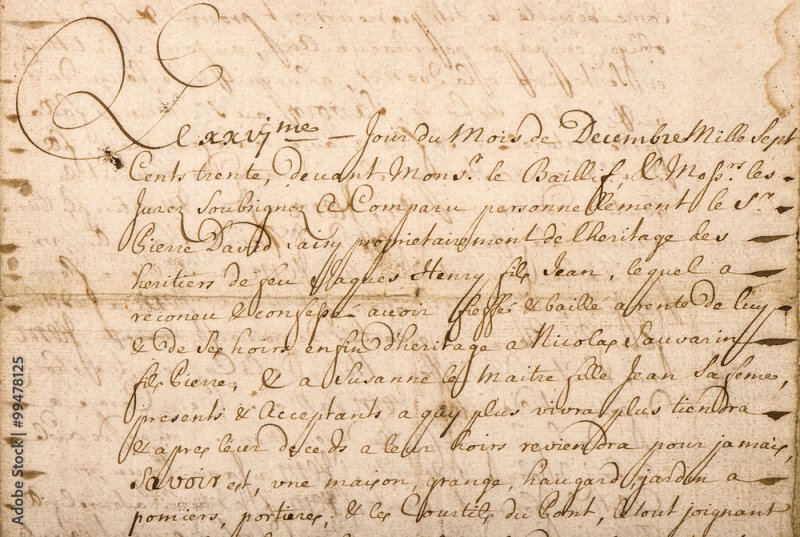 Le xxvj.me Jour du Mois de Decembre Mille Sept
Cents trente, devant Mons.r le Baillif, & Mess.rs les
Jurez Soubsignez A Comparu personnellement le S.r
Pierre David Saisy proprietairement de l'heritage des
heritiers de feu Jaques Henry fils Jean, lequel a
reconeu & confessé avoir fieffé & baillé a rente de luy
& de Ses hoirs en fin d'heritage a Nicolas Sauvarin
fils Pierre, & a Susanne le Maitre fille Jean Sa feme,
presents & Acceptants a quy plus vivra plus tiendra
& apres leur deceds a leur hoirs reviendra pour jamais,
Savoir est, une maison, grange, haugard, jardin a
pomiers, portieres, & les Courtils du Pont, le tout joignant
Adobe Stock | #99478125